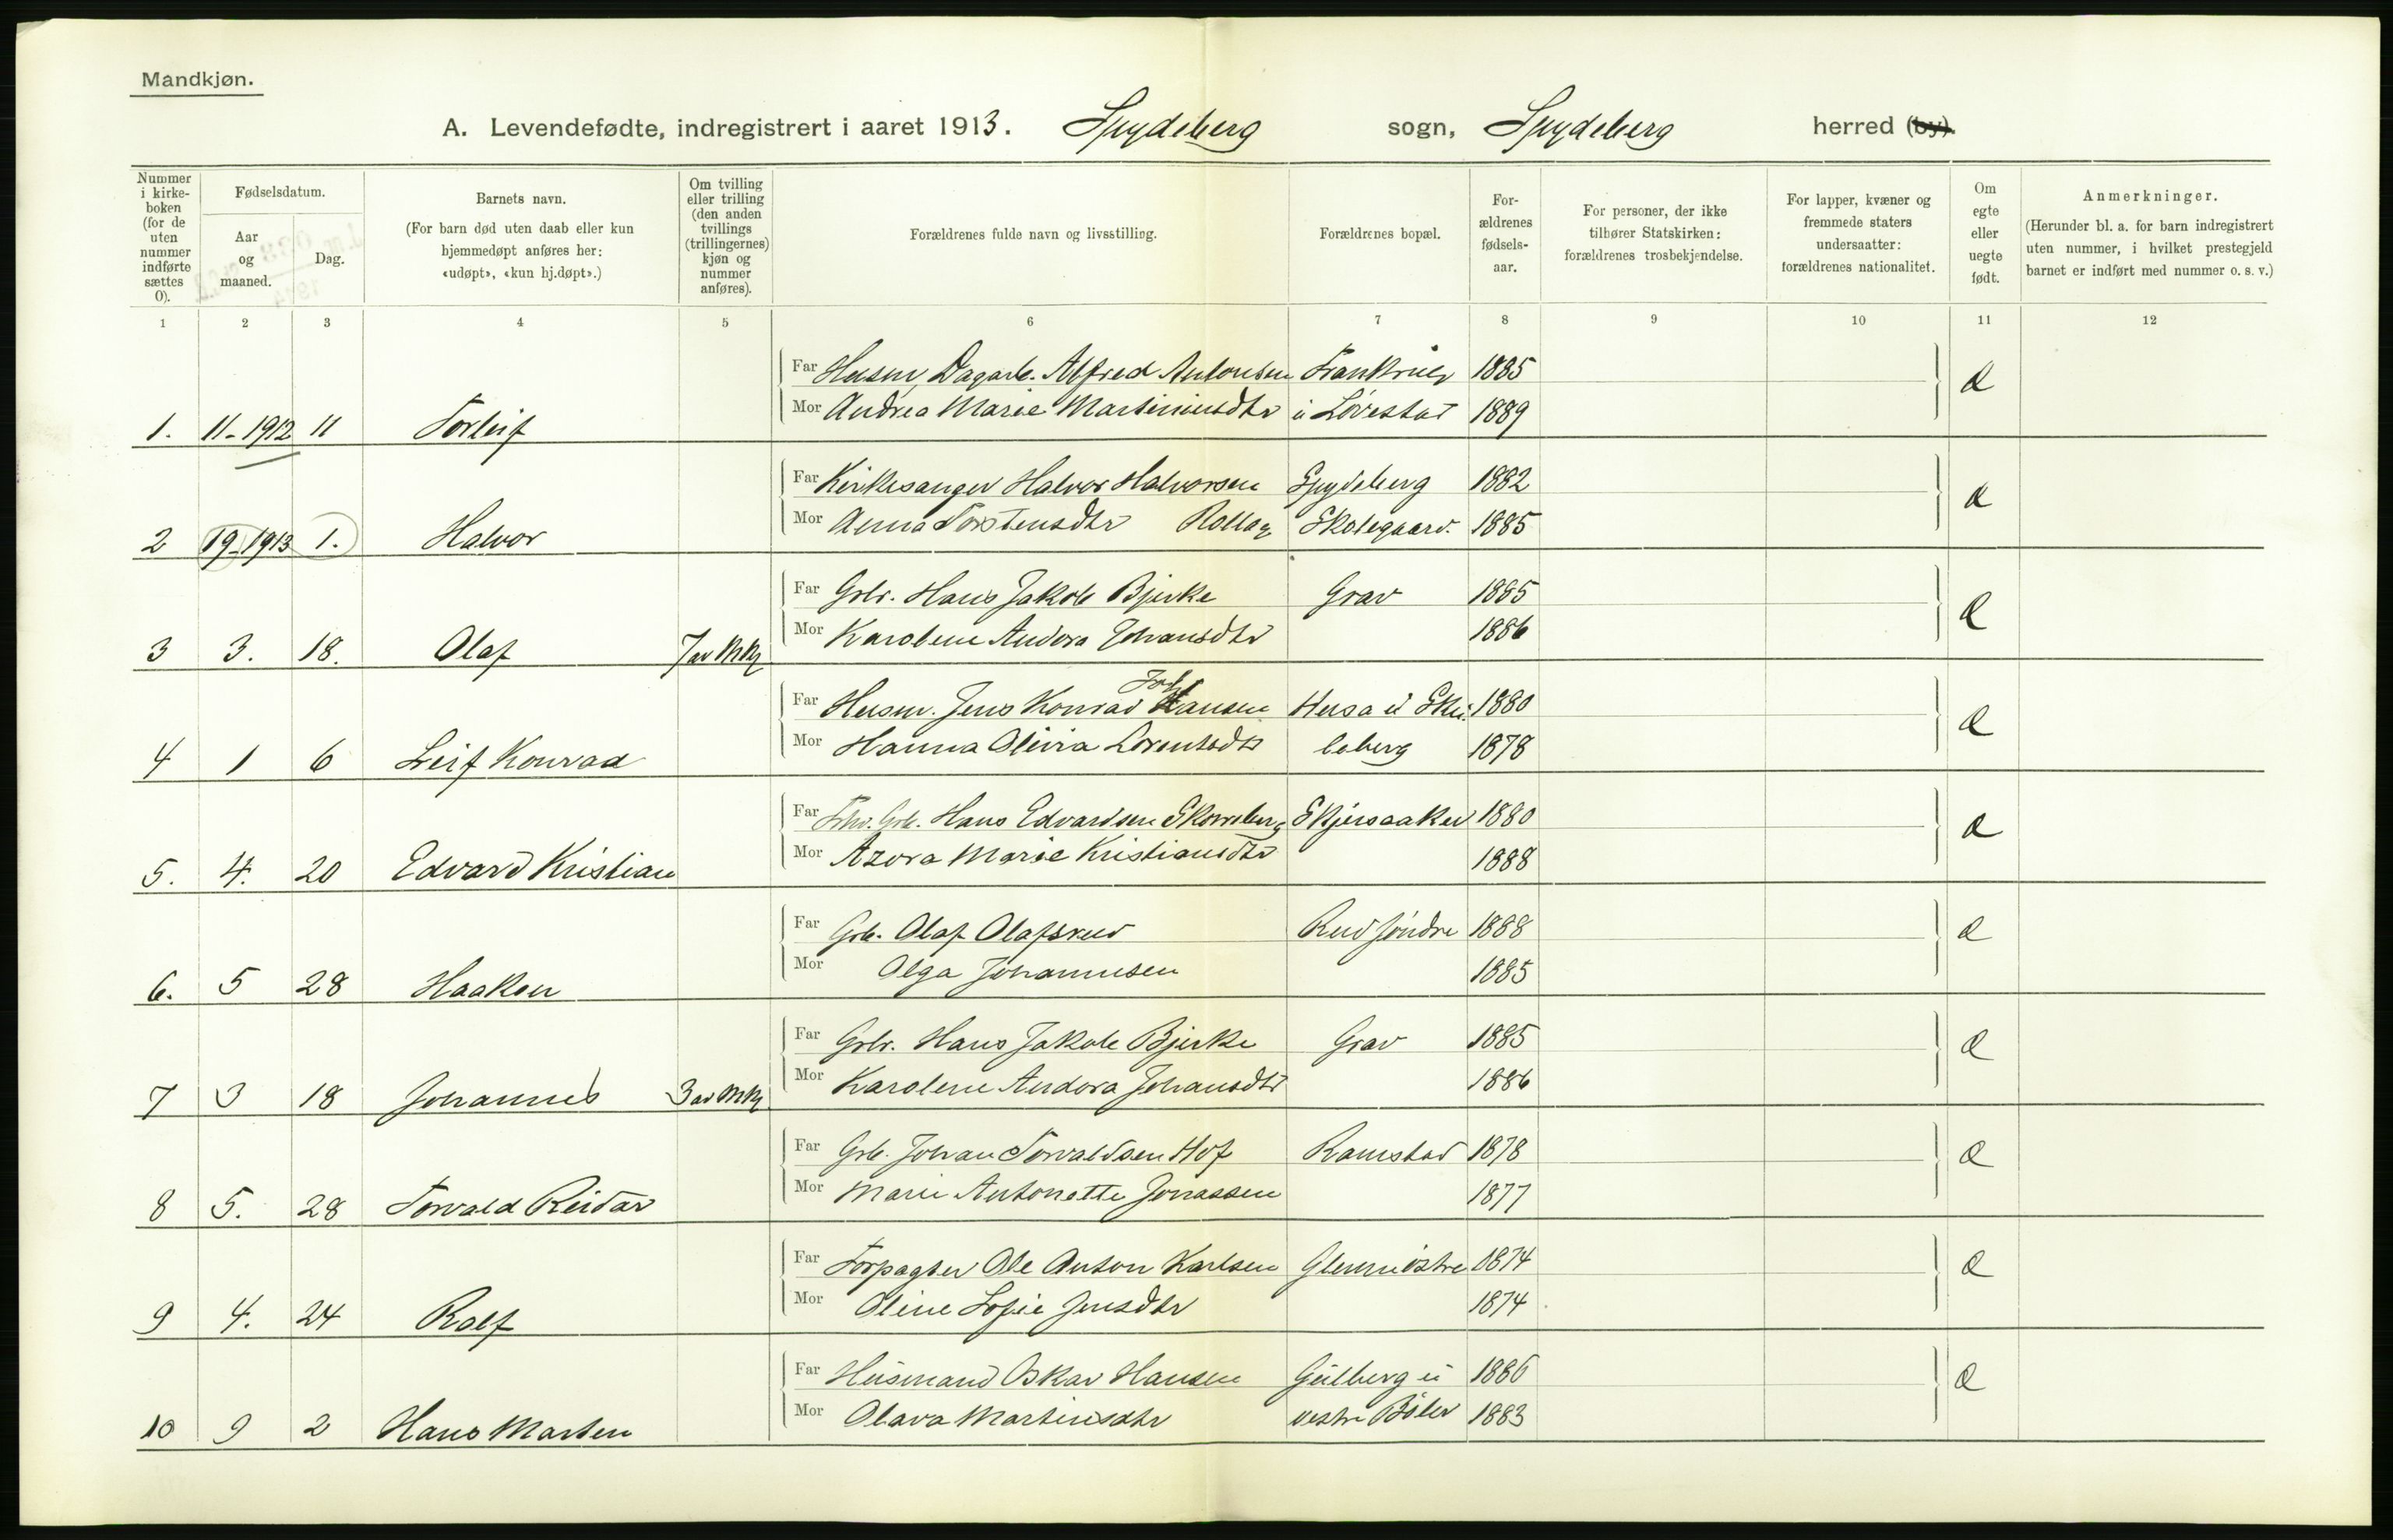 Mandkjøn.
A. Levendefødte, indregistrert i aaret 1913. Spydeberg sogn, Spydeberg herred (by).
Nummer i kirke-boken (for de uten nummer indførte sættes 0).
Fødselsdatum.
Aar og maaned.
Dag.
Barnets navn.
(For barn død uten daab eller kun hjemmedøpt anføres her: «udøpt», «kun hj.døpt».)
Om tvilling eller trilling (den anden tvillings (trillingernes) kjøn og nummer anføres).
Forældrenes fulde navn og livsstilling.
Forældrenes bopæl.
For-ældrenes fødsels-aar.
For personer, der ikke tilhører Statskirken: forældrenes trosbekjendelse.
For lapper, kvæner og fremmede staters undersaatter: forældrenes nationalitet.
Om egte eller uegte født.
Anmerkninger.
(Herunder bl. a. for barn indregistrert uten nummer, i hvilket prestegjeld barnet er indført med nummer o. s. v.)
1 2 3 4 5 6 7 8 9 10 11 12
Far Husm, Dagarb. Alfred Antonsen 1885
Mor Andrea Marie Martiniusdtr u Løvestad 1889
1. 11-1912 11 Torleif
Far Kirkesanger Halvor Halvorsen Spydeberg 1882
Mor Anna Torstensdtr Rollag Skolegaard. 1885
2 19-1913 1. Halvor
Far Grbr. Hans Jakob Bjerke Grav 1885
Mor Karolene Andora Johansdtr 1886
3 3. 18. Olaf 7 av Mk
Far Husm. Jens Konrad Hansen Husa u Ski- 1880
Mor Hanna Olivia Lorentsdtr leberg 1878
4 1 6 Leif Konrad
Far Grb. Hans Edvardsen Skovsberg Skjersaaker 1880
Mor Azora Marie Kristiansdtr 1888
5. 4. 20 Edvard Kristian
Far Grb. Olaf Olafsrud Rud søndre 1888
Mor Olga Johannesen 1885
6. 5 28 Haakon
Far Grbr. Hans Jakob Bjerke Grav 1885
Mor Karolene Andora Johansdtr 1886
7 3 18 Johannes 3 av Mk
Far Grb. Johan Torvaldsen Hof Ramstad 1878
Mor Marie Antonette Jonassen 1877
8 5. 28 Torvald Reidar
Far Forpagter Ole Anton Karlsen Glenne østre 1874
Mor Oline Sofie Jensdtr 1874
9 4. 24 Rolf
Far Husmand Oskar Hansen Gulberg u 1886
Mor Olava Martinsdtr vestre Bøler 1883
10 9 2 Hans Marten